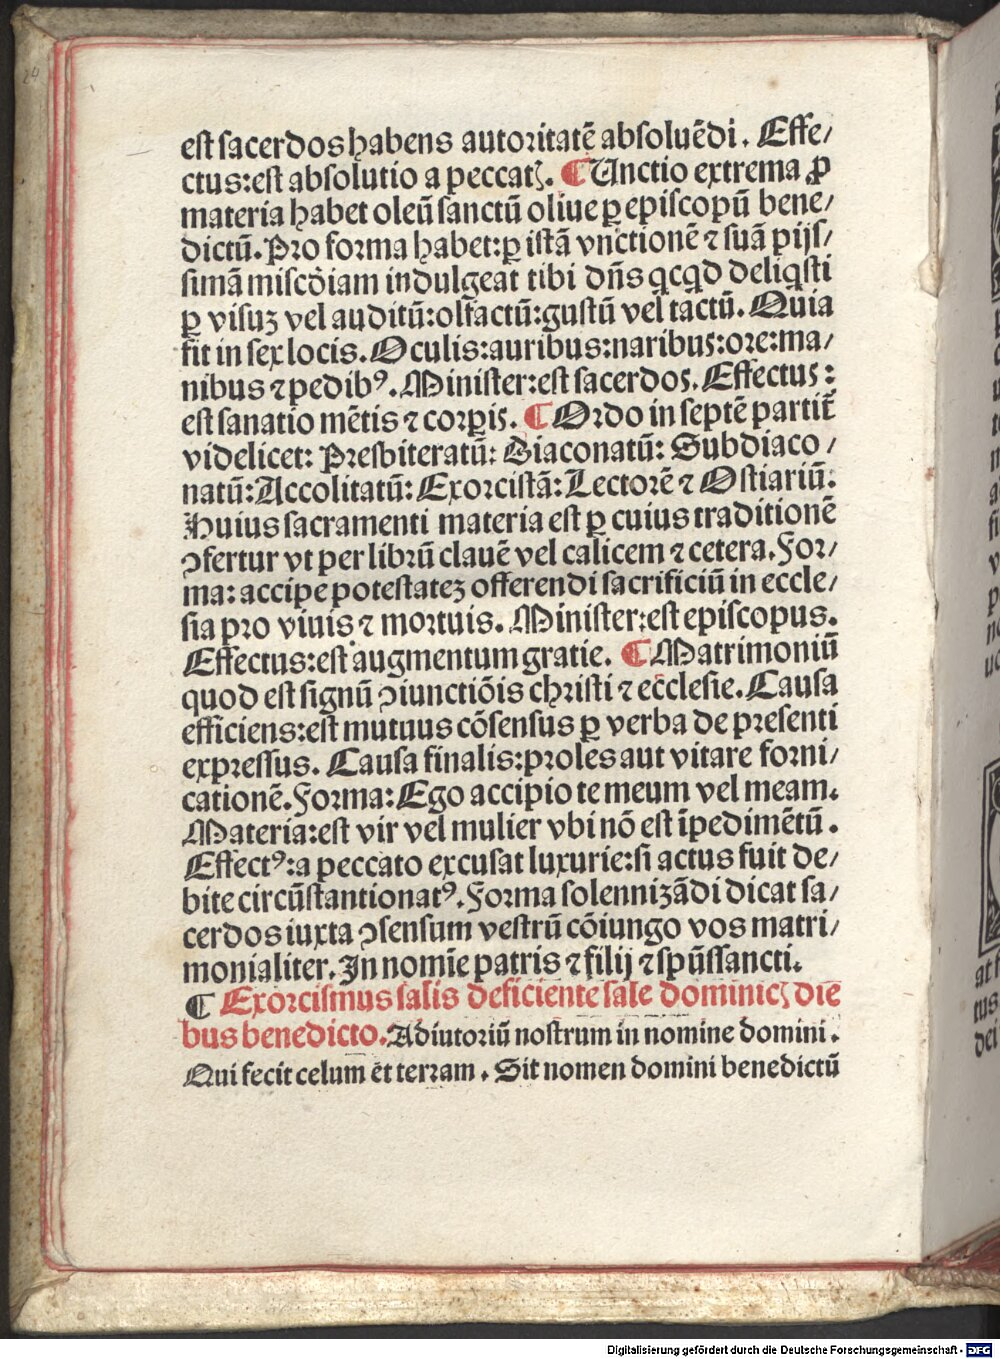 24
est sacerdos habens autoritatē absoluēdi. Effe/
ctus:est absolutio a peccatꝭ. ¶ Unctio extrema ꝓ
materia habet oleū sanctū oliue ꝑ episcopū bene/
dictū. Pro forma habet:ꝑ istā vnctionē ⁊ suā pijs/
simā miscōiam indulgeat tibi dn̄s qcqd deliqsti
ꝑ visuꝫ vel auditū:olfactū:gustū vel tactū. Quia
fit in sex locis. Oculis:auribus:naribus:ore:ma/
nibus ⁊ pedibꝰ. Minister:est sacerdos. Effectus:
est sanatio mētis ⁊ corꝑis. ¶ Ordo in septē partit̄
videlicet: Presbiteratū: Diaconatū: Subdiaco/
natū: Accolitatū: Exorcistā: Lectorē ⁊ Ostiariū:
Huius sacramenti materia est ꝑ cuius traditionē
ↄfertur vt per librū clauē vel calicem ⁊ cetera. For/
ma: accipe potestateꝫ offerendi sacrificiū in eccle/
sia pro viuis ⁊ mortuis. Minister:est episcopus.
Effectus:est augmentum gratie. ¶ Matrimoniū
quod est signū ↄiunctiōis christi ⁊ ecclesie. Causa
efficiens:est mutuus cōsensus ꝑ verba de presenti
expressus. Causa finalis:proles aut vitare forni/
cationē. Forma: Ego accipio te meum vel meam.
Materia:est vir vel mulier vbi nō est īpedimētū.
Effectꝰ:a peccato excusat luxurie:si actus fuit de/
bite circūstantionatꝰ. Forma solennizādi dicat sa/
cerdos iuxta ↄsensum vestrū cōiungo vos matri/
monialiter. In nomīe patris ⁊ filij ⁊ spūssancti.
¶ Exorcismus salis deficiente sale dominicꝭ die
bus benedicto. Adiutoriū nostrum in nomine domini.
Qui fecit celum et terram. Sit nomen domini benedictū
at f
tus
det
Digitalisierung gefördert durch die Deutsche Forschungsgemeinschaft - DFG